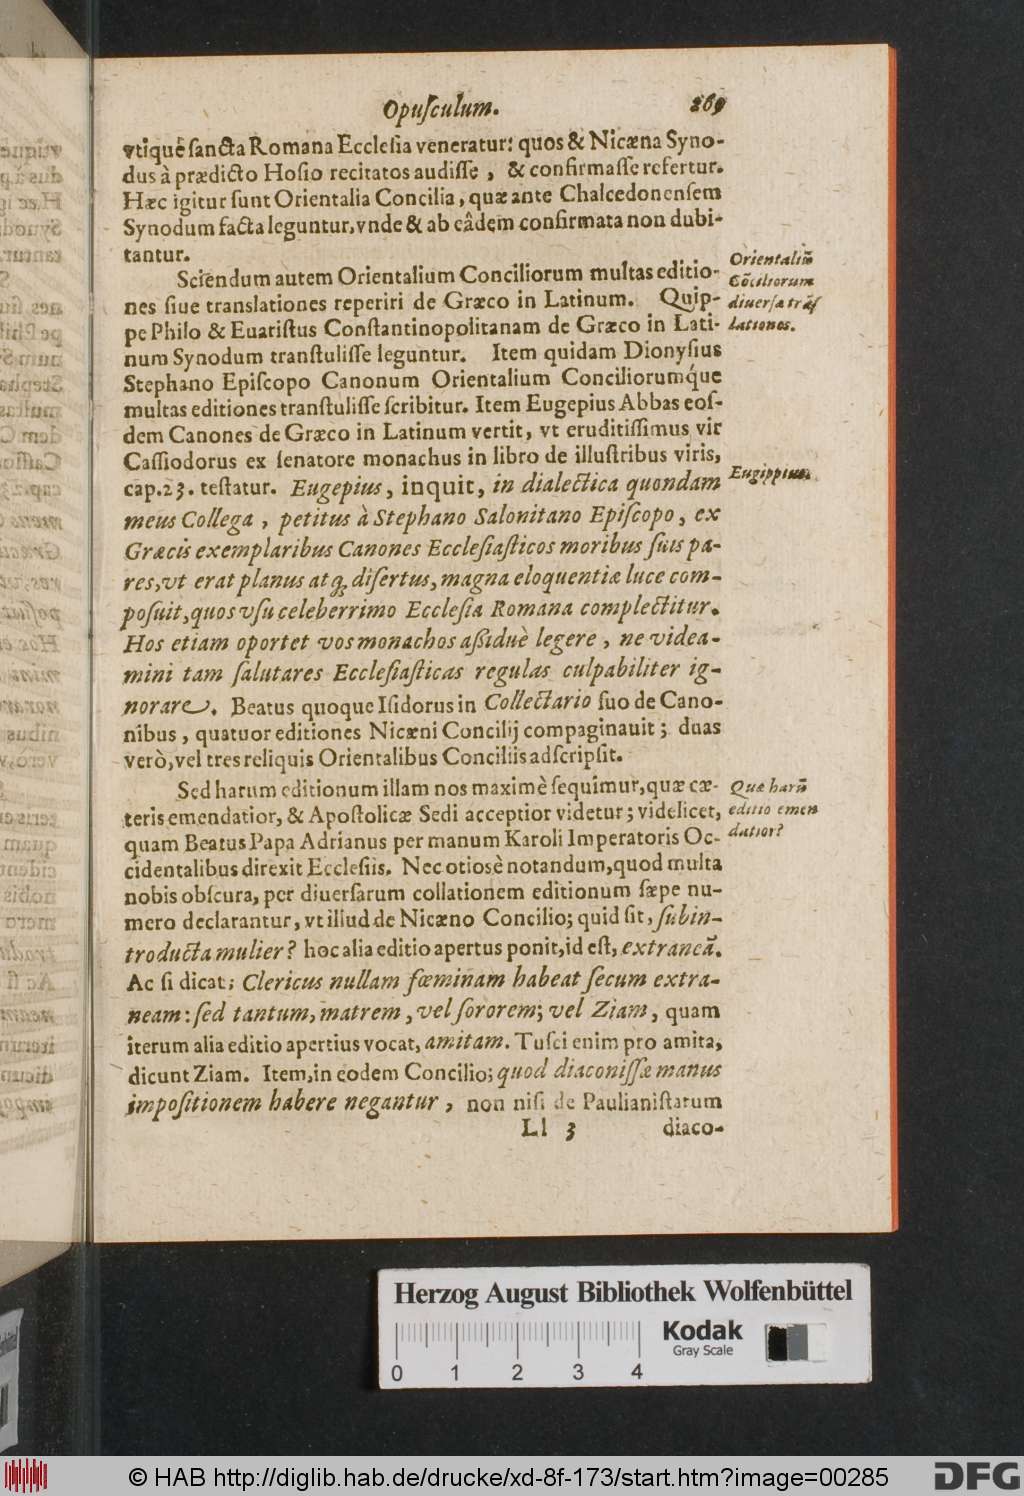 Opuſculum. 269
vtiquè ſancta Romana Eccleſia veneratur: quos & Nicæna Syno-
dus à prædicto Hoſio recitatos audiſſe, & confirmaſſe refertur.
Hæc igitur ſunt Orientalia Concilia, quæ ante Chalcedonenſem
Synodum facta leguntur, vnde & ab eâdem confirmata non dubi-
tantur.
Sciendum autem Orientalium Conciliorum multas editio-
nes ſiue translationes reperiri de Græco in Latinum. Quip-
pe Philo & Euariſtus Conſtantinopolitanam de Græco in Lati-
num Synodum tranſtuliſſe leguntur. Item quidam Dionyſius
Stephano Epiſcopo Canonum Orientalium Conciliorumq́ue
multas editiones tranſtuliſſe ſcribitur. Item Eugepius Abbas eoſ-
dem Canones de Græco in Latinum vertit, vt eruditiſſimus vir
Caſſiodorus ex ſenatore monachus in libro de illuſtribus viris,
cap. 23. teſtatur. Eugepius, inquit, in dialectica quondam
meus Collega, petitus à Stephano Salonitano Epiſcopo, ex
Græcis exemplaribus Canones Eccleſiaſticos moribus ſuis pa-
res, vt erat planus atq; diſertus, magna eloquentiæ luce com-
poſuit, quos vſu celeberrimo Eccleſia Romana complectitur.
Hos etiam oportet vos monachos aſſiduè legere, ne videa-
mini tam ſalutares Eccleſiaſticas regulas culpabiliter ig-
norare. Beatus quoque Iſidorus in Collectario ſuo de Cano-
nibus, quatuor editiones Nicæni Concilij compaginauit; duas
verò, vel tres reliquis Orientalibus Conciliis adſcripſit.
Sed harum editionum illam nos maximè ſequimur, quæ cæ-
teris emendatior, & Apoſtolicæ Sedi acceptior videtur; videlicet,
quam Beatus Papa Adrianus per manum Karoli Imperatoris Oc-
cidentalibus direxit Eccleſiis. Nec otiosè notandum, quod multa
nobis obſcura, per diuerſarum collationem editionum ſæpe nu-
mero declarantur, vt illud de Nicæno Concilio; quid ſit, ſubin-
troducta mulier? hoc alia editio apertus ponit, id eſt, extraneā.
Ac ſi dicat; Clericus nullam fœminam habeat ſecum extra-
neam: ſed tantum, matrem, vel ſororem; vel Ziam, quam
iterum alia editio apertius vocat, amitam. Tuſci enim pro amita,
dicunt Ziam. Item, in eodem Concilio; quod diaconiſſæ manus
impoſitionem habere negantur, non niſi de Paulianiſtarum
Ll 3 diaco-
Orientaliū
Cōciliorum
diuerſa trāſ
lationes.
Eugippius.
Quæ harū
editio emen
datior?
Herzog August Bibliothek Wolfenbüttel
Kodak
Gray Scale
0 1 2 3 4
© HAB http://diglib.hab.de/drucke/xd-8f-173/start.htm?image=00285
DFG